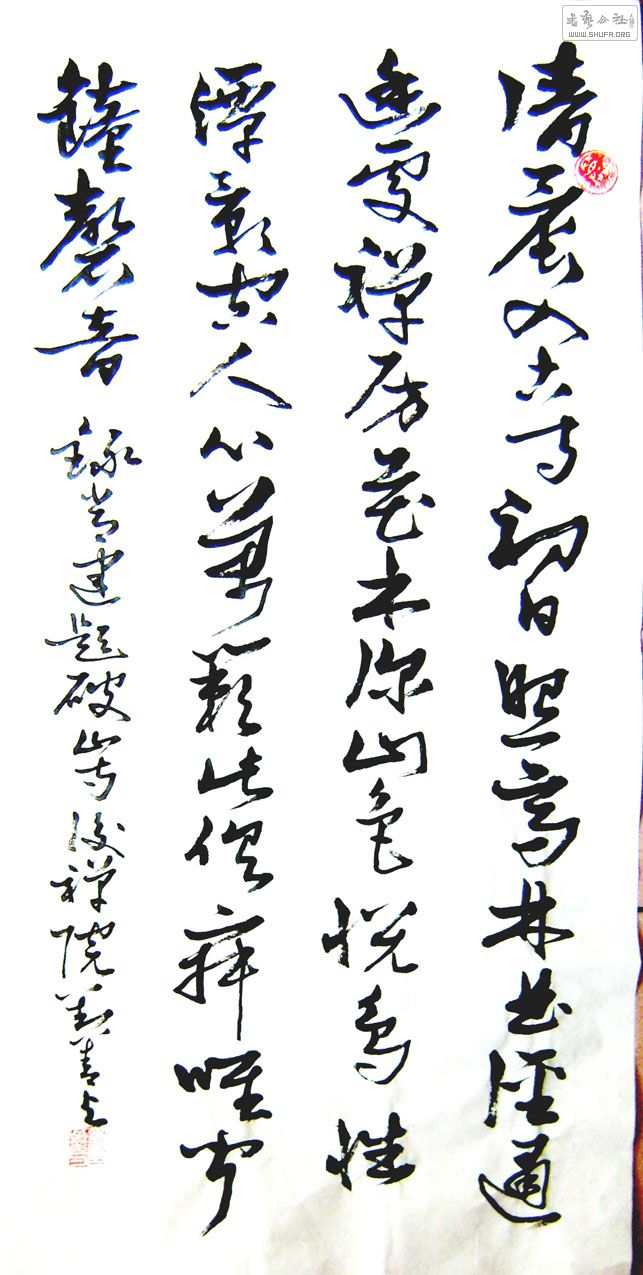 書藝公社
WWW.SHUFA.ORG
清晨入古寺初日照高林曲徑通
幽處禪房花木深山色悅鳥性
潭影空人心萬籟此俱寂唯聞
鐘磬音 錄常建題破山寺後禪院